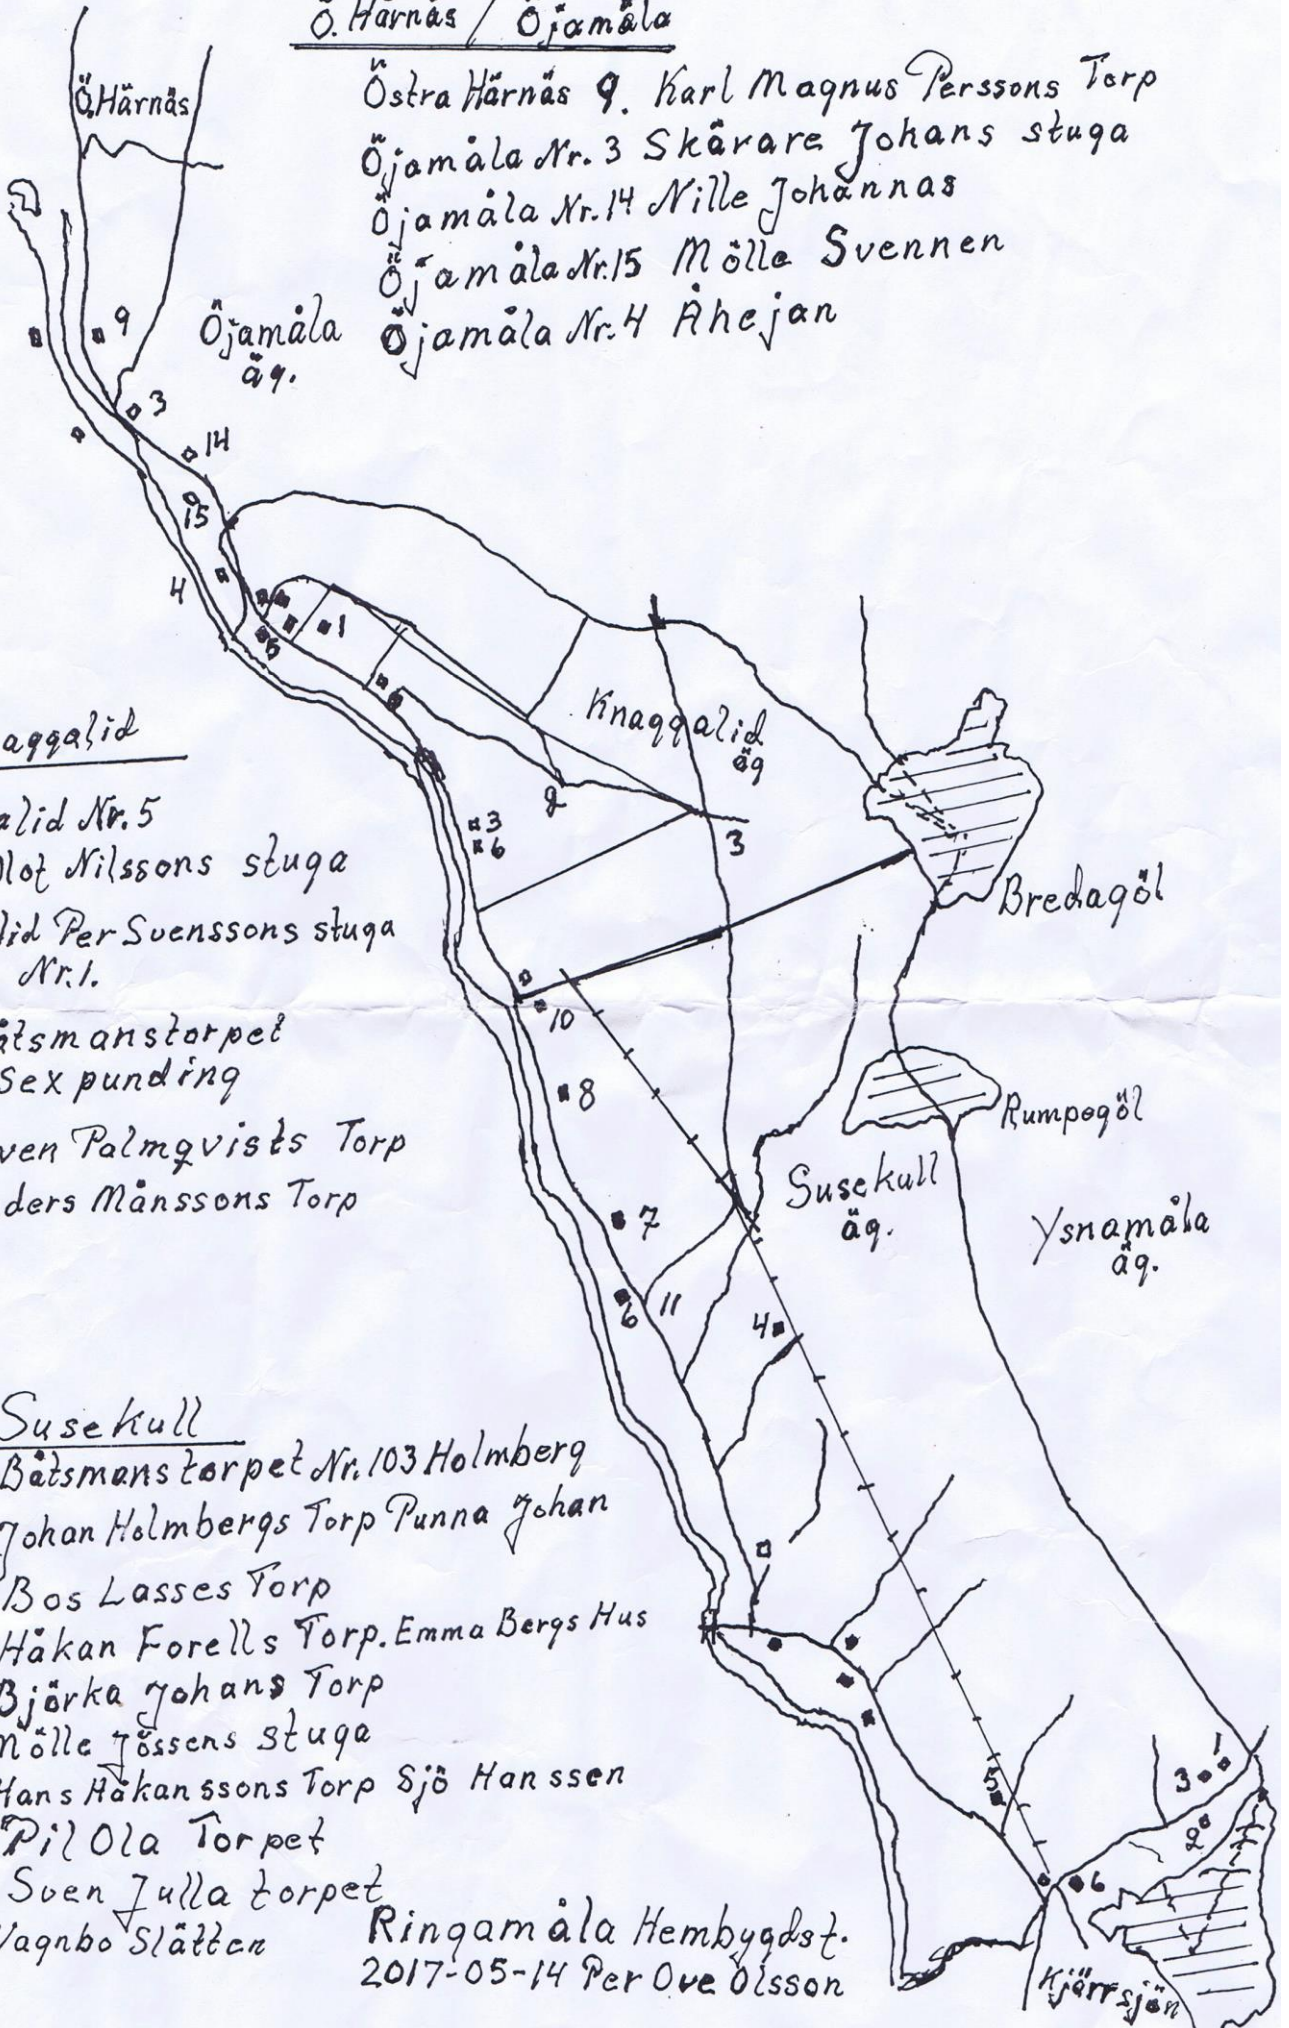 Ö. Härnäs / Öjamåla
Östra Härnäs 9. Karl Magnus Perssons Torp
Öjamåla Nr. 3 Skärare Johans stuga
Öjamåla Nr. 14 Nille Johannas
Öjamåla Nr. 15 Mölle Svennen
Öjamåla Nr. 4 Åhejan
Ö. Härnäs
9
Öjamåla
äg.
3
14
15
4
1
5
Knaggalid
äg
2
3
3
6
Bredagöl
10
8
Rumpegöl
Susekull
äg.
Ysnamåla
äg.
7
6
11
4
5
1
3
2
6
Kjärrsjön
aggalid
alid Nr. 5
llot Nilssons stuga
lid Per Svenssons stuga
Nr. 1.
åtsmanstorpet
Sex punding
ven Palmqvists Torp
ders Månssons Torp
Susekull
Båtsmanstorpet Nr. 103 Holmberg
Johan Holmbergs Torp Punna Johan
Bos Lasses Torp
Håkan Forells Torp. Emma Bergs Hus
Björka Johans Torp
Mölle Jössens stuga
Hans Håkanssons Torp Sjö Hanssen
Pil Ola Torpet
Sven Julla torpet
Vagnbo Slätten
Ringamåla Hembygdsf.
2017-05-14 Per Ove Olsson